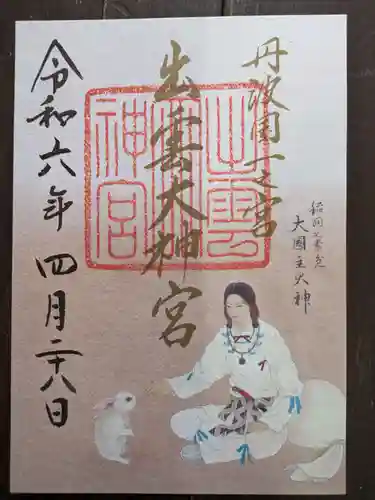 丹波國一之宮
出雲大神宮
令和六年四月二十八日
稲羽之素兎
大國主大神
出雲
神宮